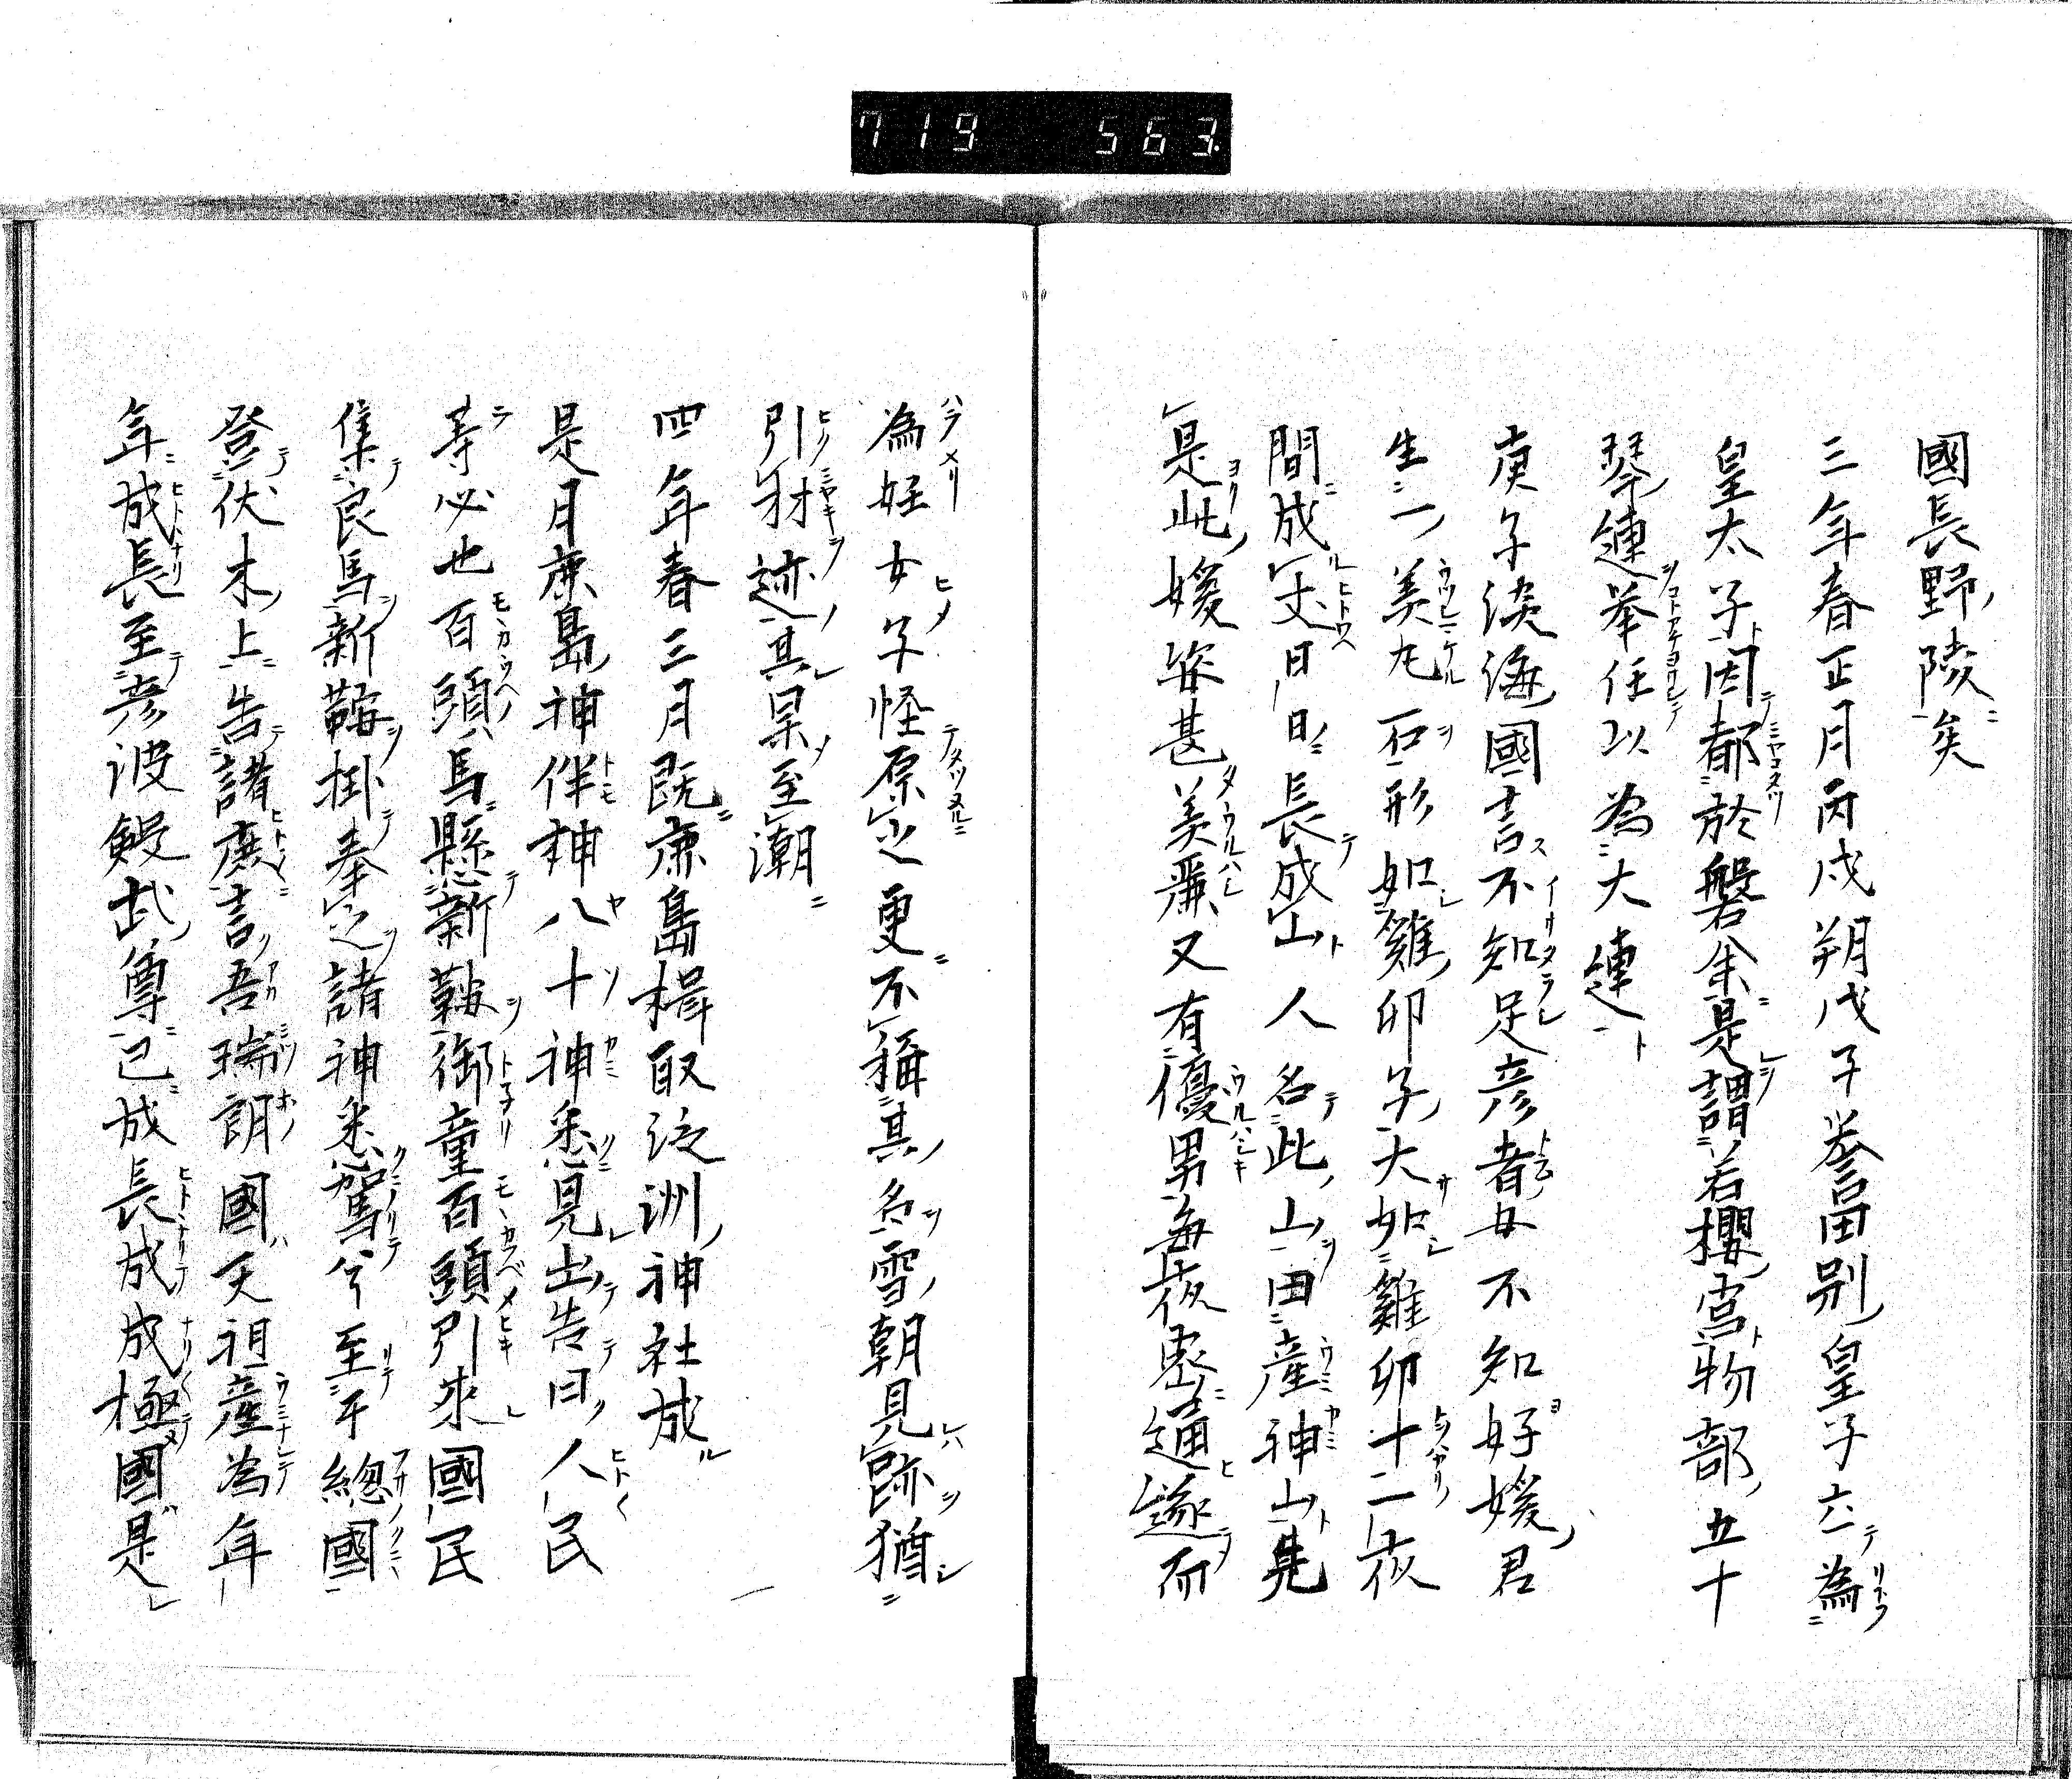 719 563.
國長野陵矣
三年春正月丙戌朔戊子誉田別皇子立為
皇太子因都於磐余是謂若櫻宮物部五十
琴連举任以為大連
庚子淡海國言不知足彦者女不知好媛君
生一美丸石形如雞卵子大如雞卵十二夜
間成丈日日長成山人名此山田産神山見
是此媛姿甚美麗又有優男毎夜密通遂而
為妊女子怪原之更不稱其名雪朝見跡猶
引材迹其杲至潮
四年春三月既鹿島楫取泛洲神社成
是月鹿島神伴神八十神悉見出告曰人民
等必也百頭馬懸新鞍御童百頭引来國民
集良馬新鞍掛奉之諸神悉駕兮至于總國
登伏木上告諸廣言吾瑞朗國天祖産為年
年成長至彦波瀲武尊已成長成成極國是